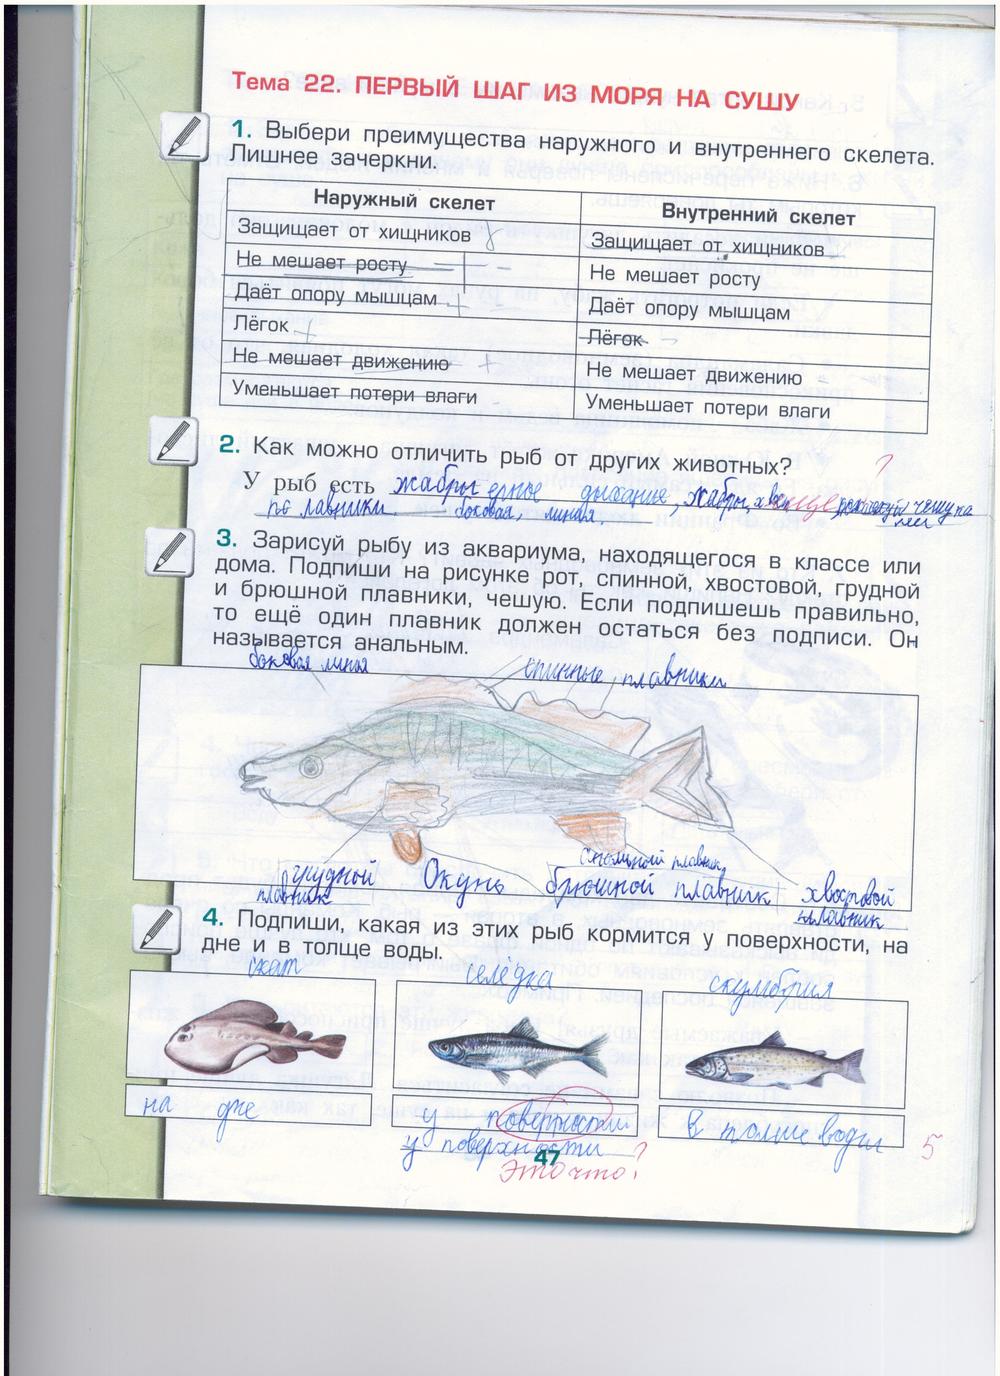 Тема 22. ПЕРВЫЙ ШАГ ИЗ МОРЯ НА СУШУ
1. Выбери преимущества наружного и внутреннего скелета.
Лишнее зачеркни.
Наружный скелет
Внутренний скелет
Защищает от хищников
Защищает от хищников
Не мешает росту
Не мешает росту
Даёт опору мышцам
Даёт опору мышцам
Лёгок
Лёгок
Не мешает движению
Не мешает движению
Уменьшает потери влаги
Уменьшает потери влаги
2. Как можно отличить рыб от других животных?
У рыб есть жаберное дыхание, жабры,
плавники боковая линия.
3. Зарисуй рыбу из аквариума, находящегося в классе или
дома. Подпиши на рисунке рот, спинной, хвостовой, грудной
и брюшной плавники, чешую. Если подпишешь правильно,
то ещё один плавник должен остаться без подписи. Он
называется анальным.
боковая линия
спинные плавники
грудной
плавник
Окунь
брюшной плавник
хвостовой
плавник
4. Подпиши, какая из этих рыб кормится у поверхности, на
дне и в толще воды.
скат
селёдка
скумбрия
на дне
у поверхности
в толще воды
у поверхности
47
Это что?
5